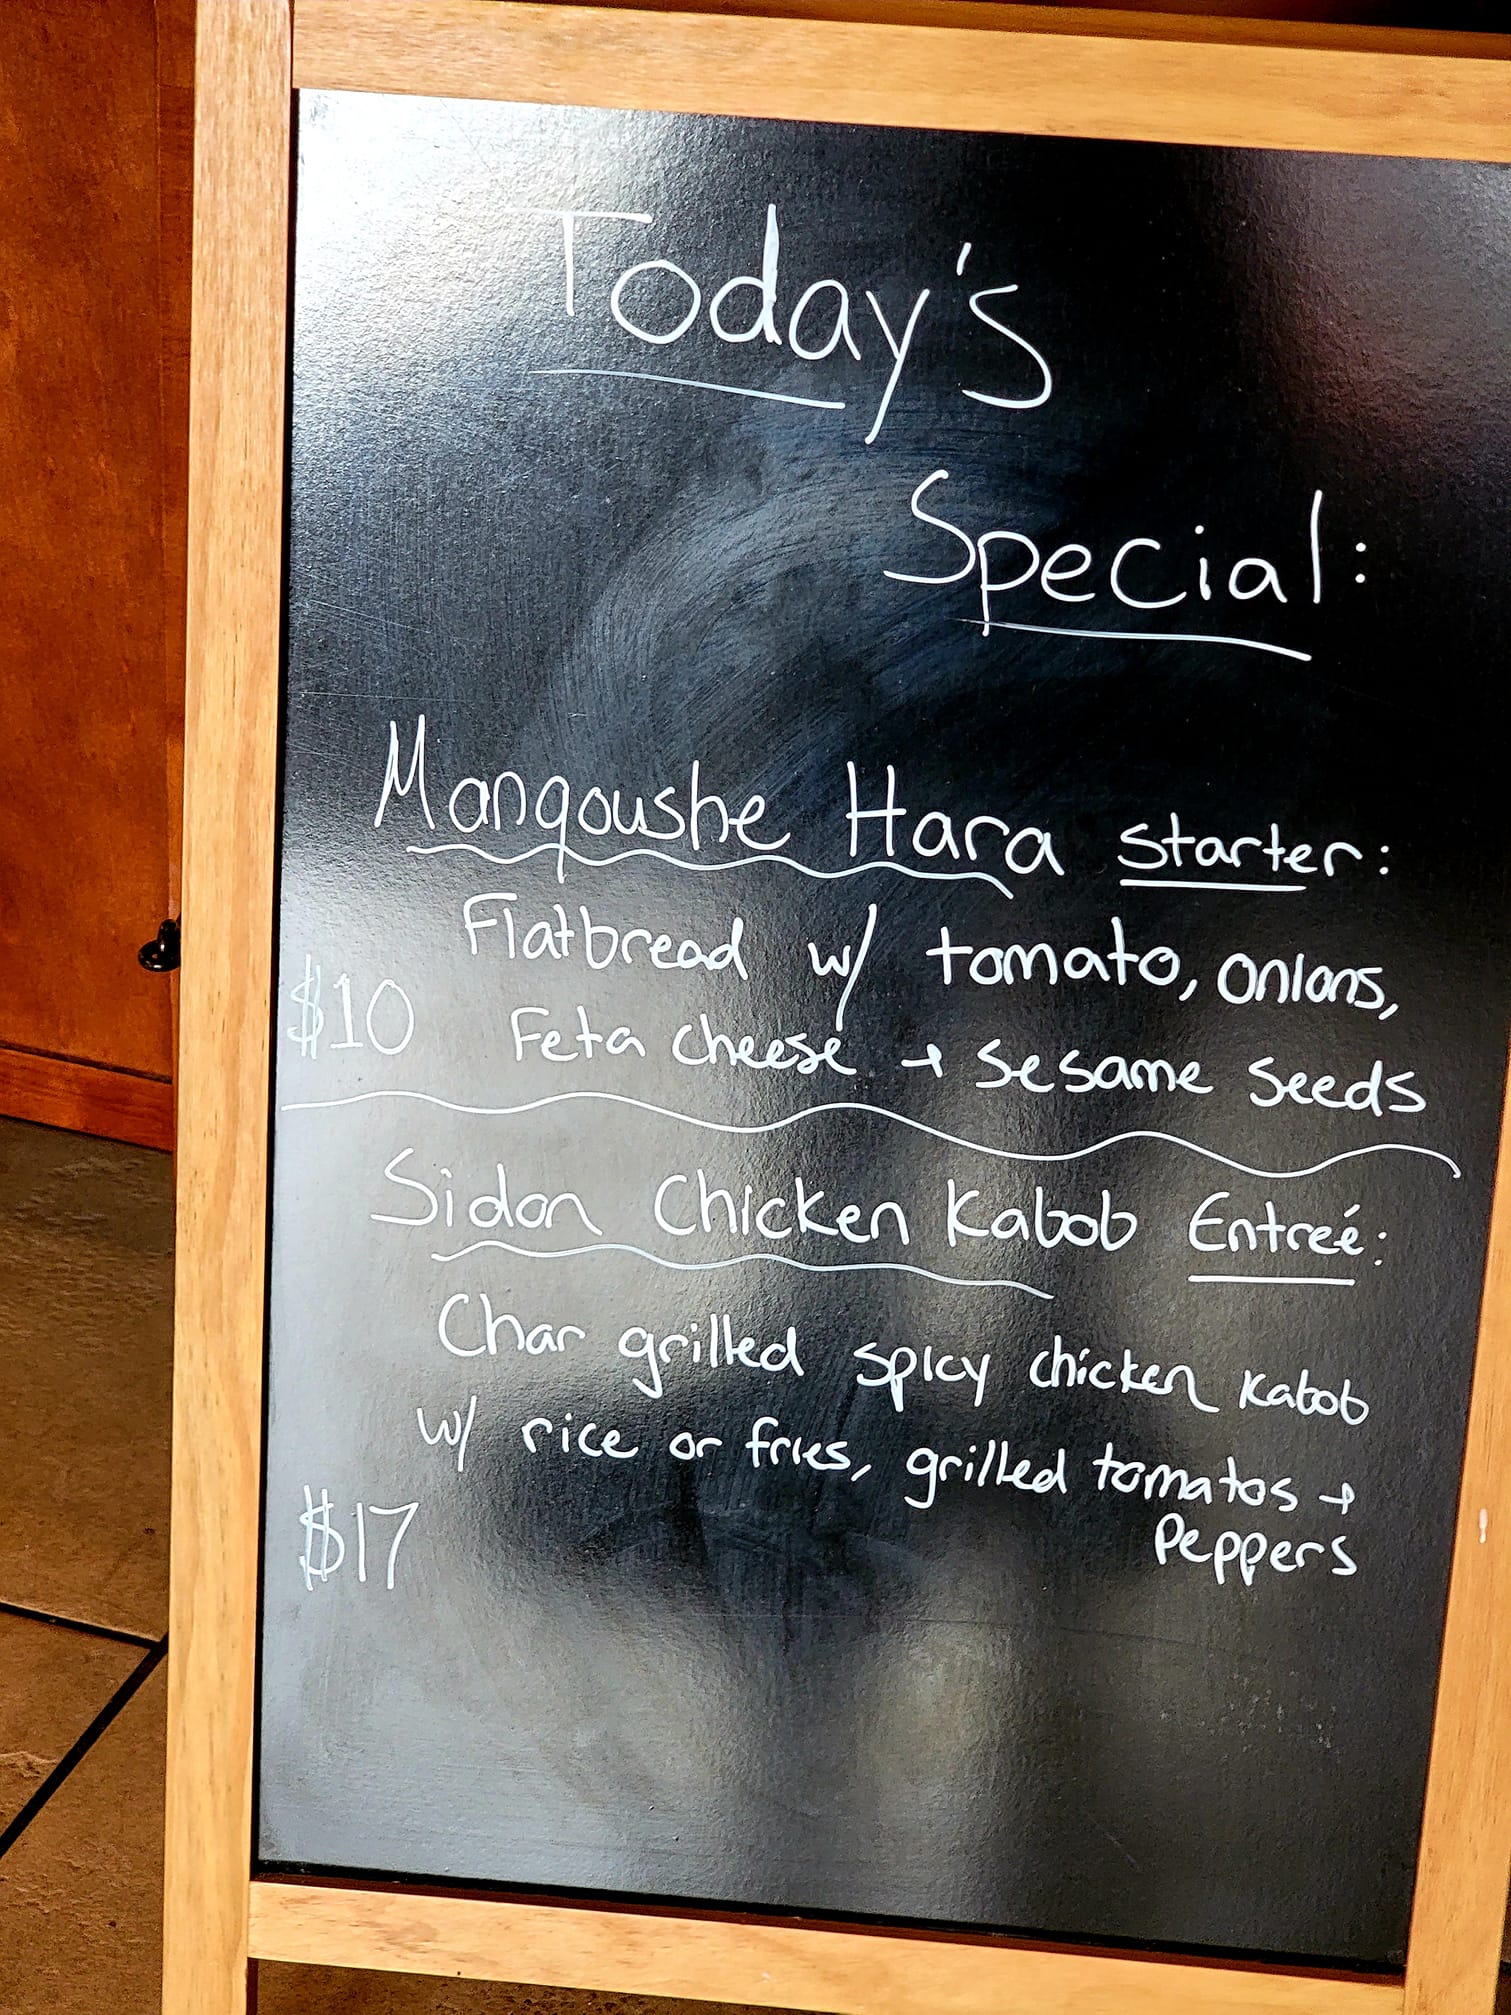 Today's
Special:
Manqoushe Hara starter:
Flatbread w/ tomato, onions,
$10 Feta cheese + sesame seeds
Sidon Chicken Kabob Entreé:
Char grilled spicy chicken kabob
w/ rice or fries, grilled tomatos +
Peppers
$17